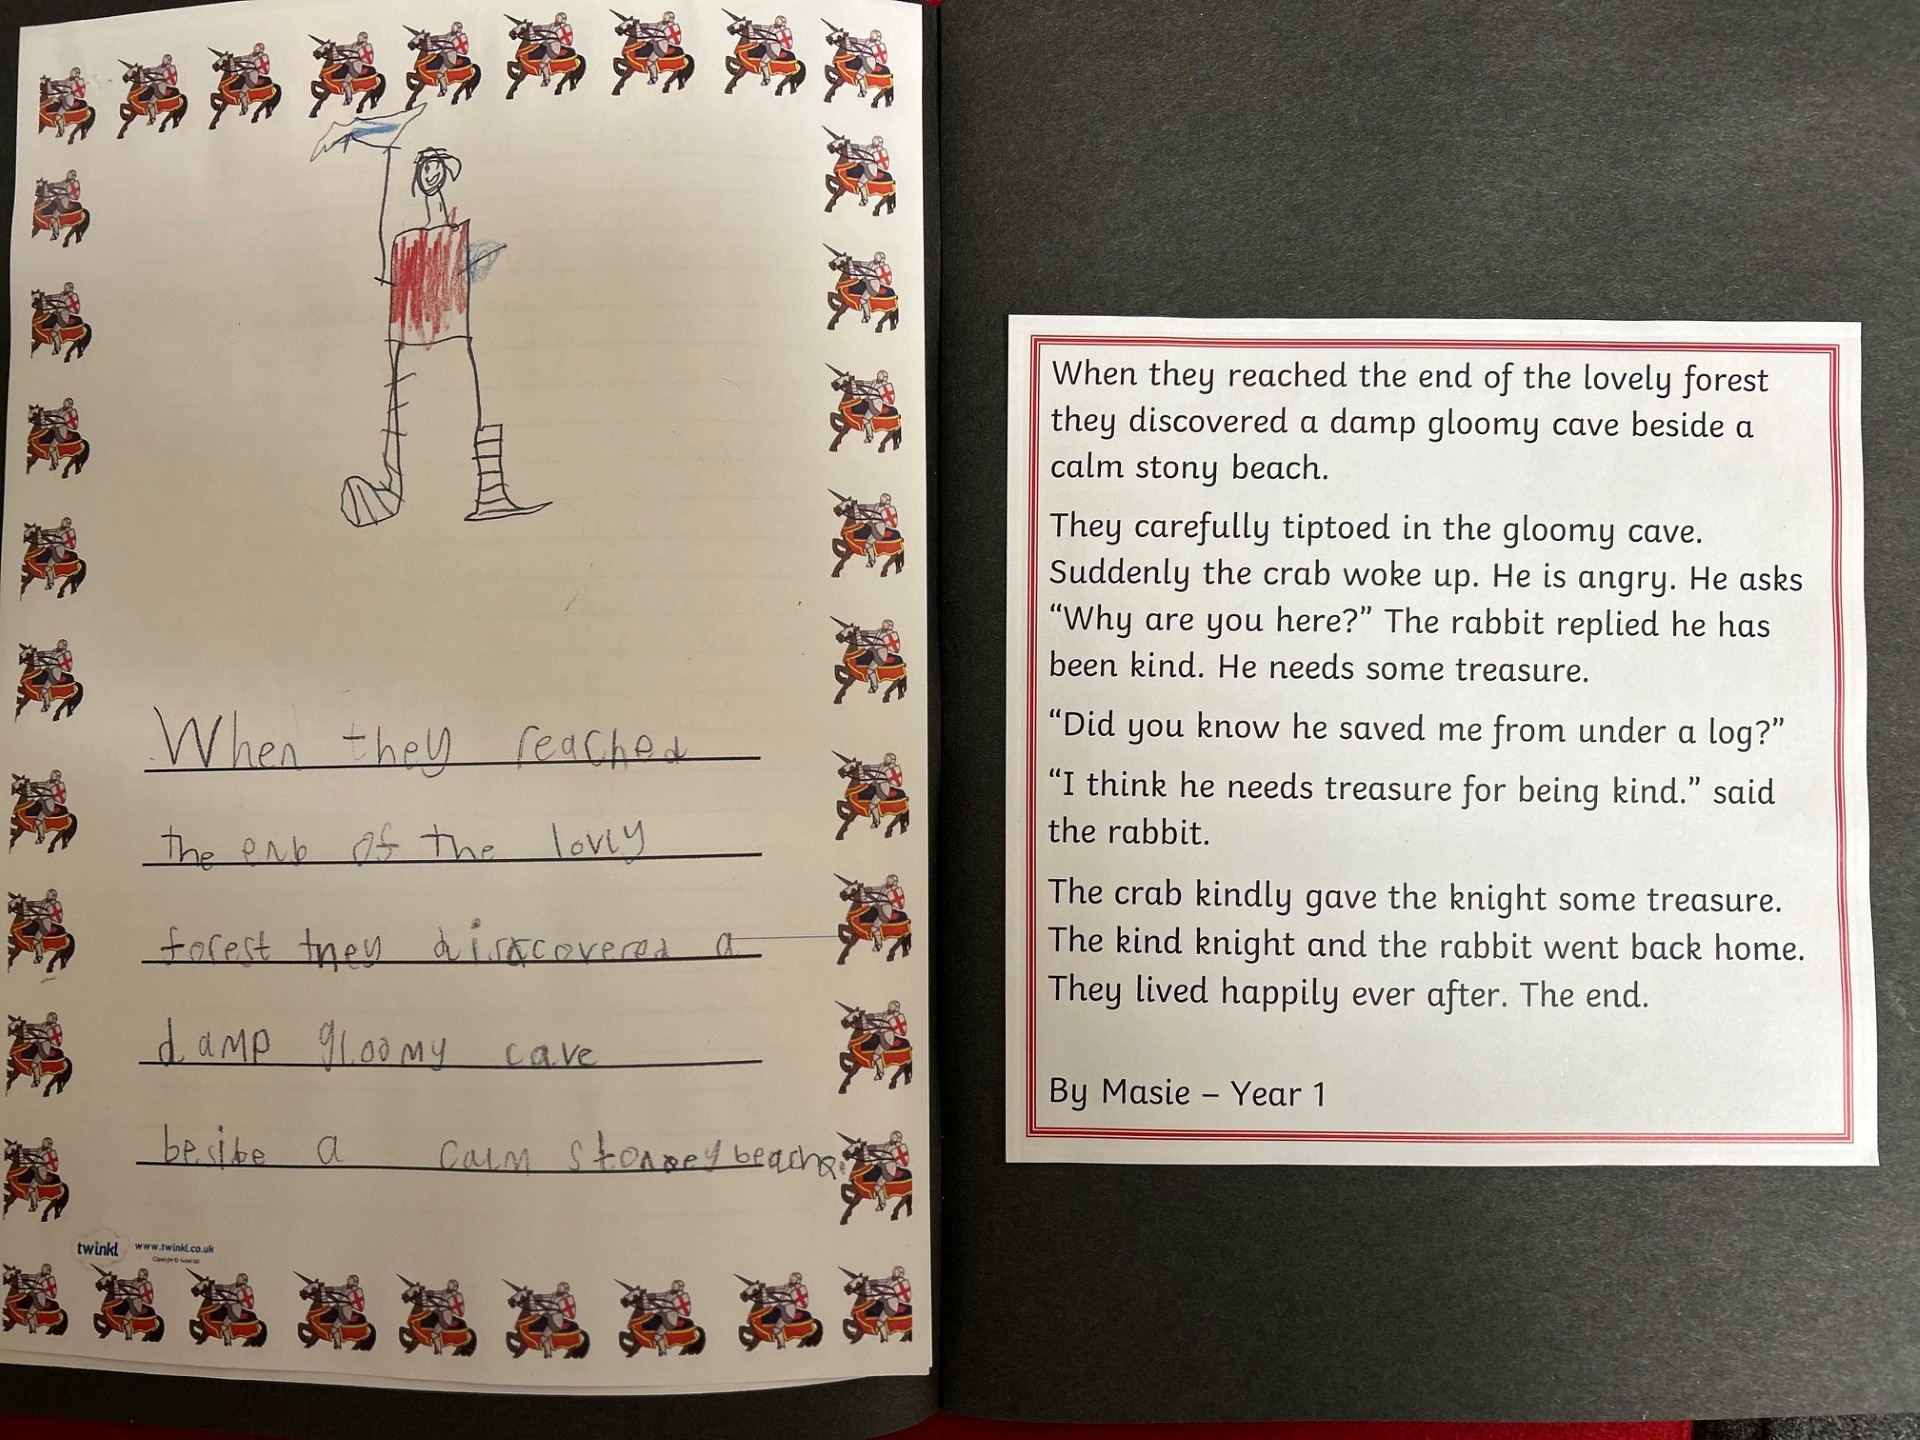 When they reached
the enb of the lovly
forest they discovered a
damp gloomy cave
besibe a calm stoney beach.
twinkl www.twinkl.co.uk
When they reached the end of the lovely forest
they discovered a damp gloomy cave beside a
calm stony beach.
They carefully tiptoed in the gloomy cave.
Suddenly the crab woke up. He is angry. He asks
“Why are you here?” The rabbit replied he has
been kind. He needs some treasure.
“Did you know he saved me from under a log?”
“I think he needs treasure for being kind.” said
the rabbit.
The crab kindly gave the knight some treasure.
The kind knight and the rabbit went back home.
They lived happily ever after. The end.
By Masie – Year 1